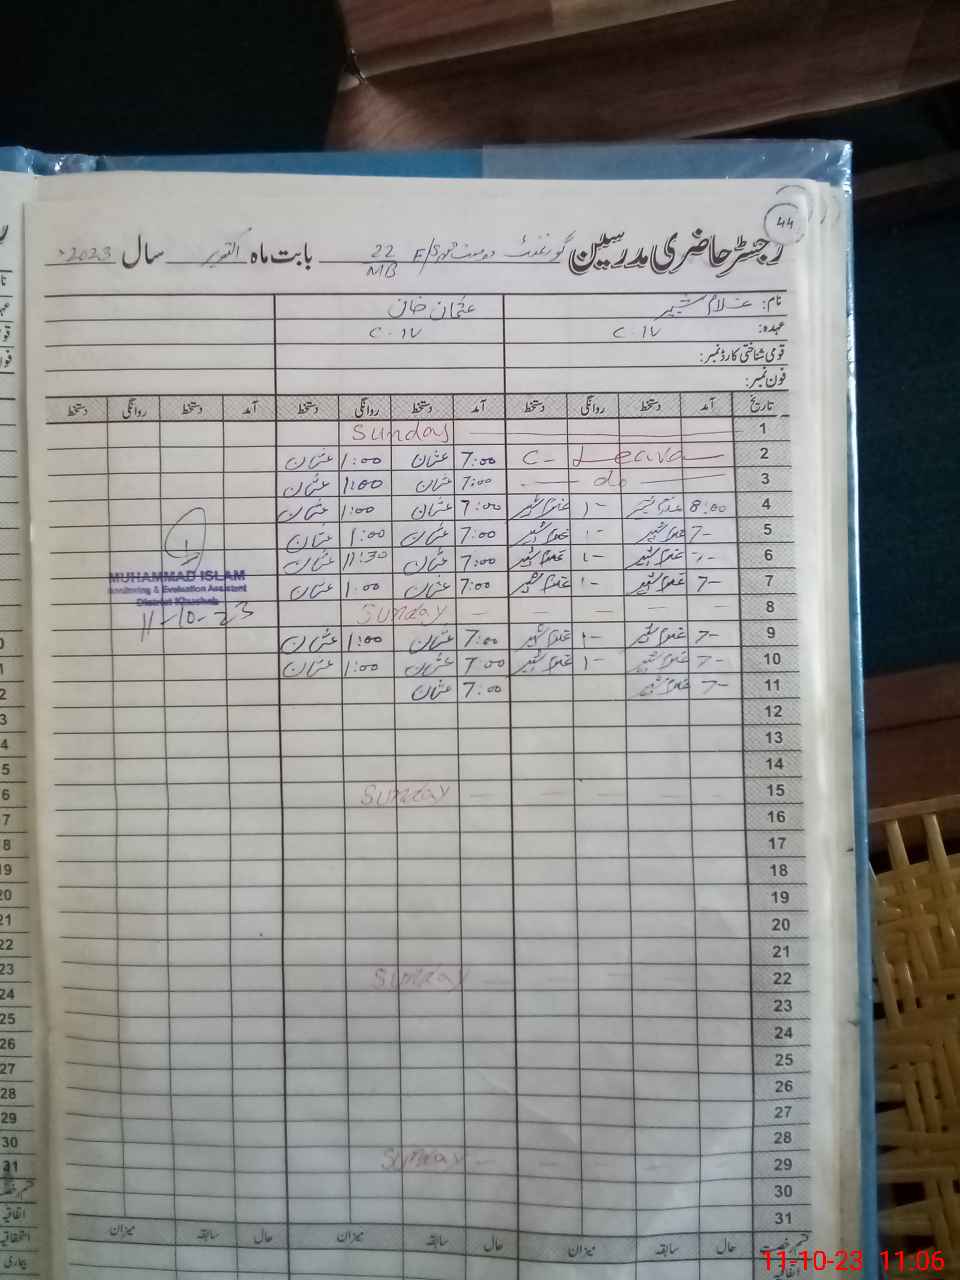 44
رجسٹر حاضری مدرسین گورنمنٹ F/S 22 MB بابت ماہ اکتوبر سال 2023
نام: غلام شبیر عثمان خان
عہدہ: C-IV C-IV
قومی شناختی کارڈ نمبر:
فون نمبر:
تاریخ آمد دستخط روانگی دستخط آمد دستخط روانگی دستخط آمد دستخط روانگی دستخط
1 Sunday
2 C- Leave 7:00 عثمان 1:00 عثمان
3 do 7:00 عثمان 1:00 عثمان
4 8:00 غلام شبیر 1- غلام شبیر 7:00 عثمان 1:00 عثمان
5 7- غلام شبیر 1- غلام شبیر 7:00 عثمان 1:00 عثمان
6 7- غلام شبیر 1- غلام شبیر 7:00 عثمان 11:30 عثمان
7 7- غلام شبیر 1- غلام شبیر 7:00 عثمان 1:00 عثمان
MUHAMMAD ISLAM
Monitoring & Evaluation Assistant
District Khushab
11-10-23
8 Sunday
9 7- غلام شبیر 1- غلام شبیر 7:00 عثمان 1:00 عثمان
10 7- غلام شبیر 1- غلام شبیر 7:00 عثمان 1:00 عثمان
11 7- غلام شبیر 7:00 عثمان
12
13
14
15 Sunday
16
17
18
19
20
21
22 Sunday
23
24
25
26
27
28
29 Sunday
30
31
حال سابقہ میزان حال سابقہ میزان حال سابقہ میزان
11-10-23 11:06